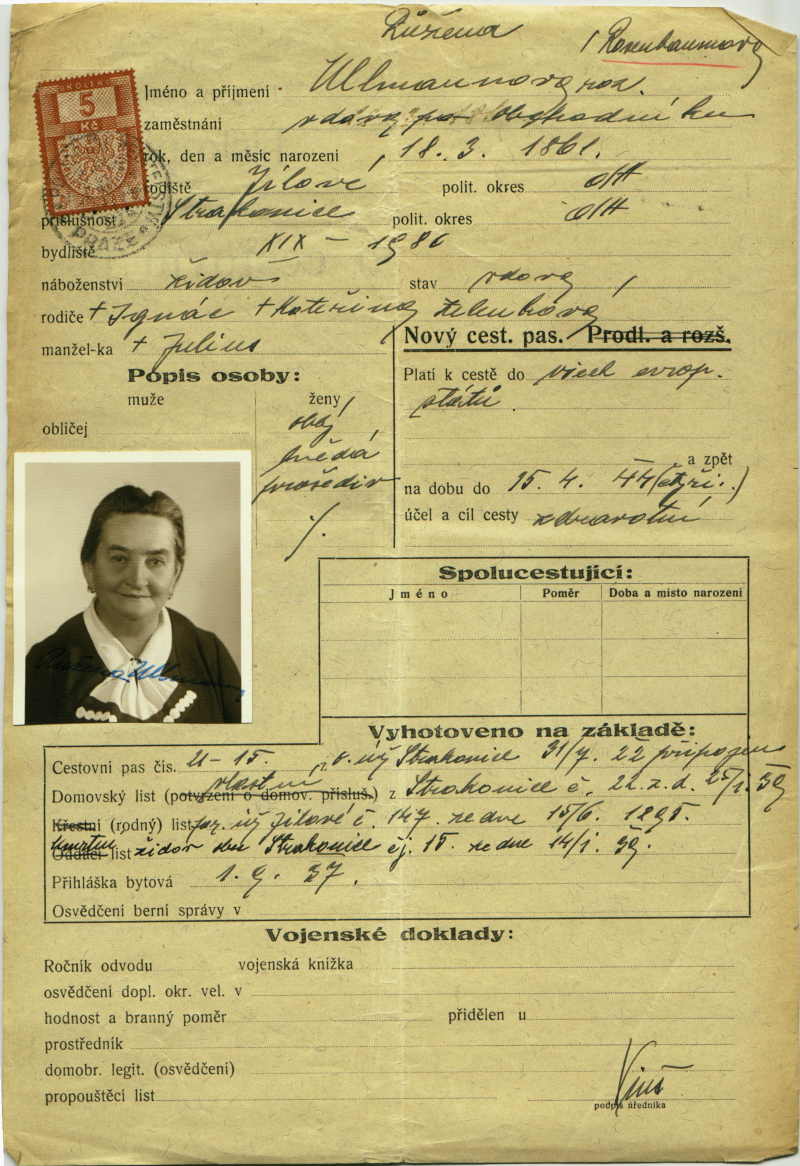 Růžena
/ Rosenbaumová
Jméno a příjmení Ullmannová roz.
zaměstnání vdova po obchodníku
rok, den a měsíc narození 18. 3. 1861.
rodiště Jílové polit. okres dtt
příslušnost Strakonice polit. okres dtt
bydliště XIX – 1980
náboženství židov. stav vdova
rodiče + Ignác + Kateřina
manžel-ka + Julius
Nový cest. pas. Prodl. a rozš.
Popis osoby:
muže ženy
obličej obl.
hnědá
prošediv
/.
Platí k cestě do všech evrop.
států.
a zpět
na dobu do 15. 4. 44 (čtyři.)
účel a cíl cesty zdravotní
KOLEK
5
Kč
PRAZE
Růžena Ullmannová
Spolucestující:
Jméno Poměr Doba a místo narození
Vyhotoveno na základě:
Cestovní pas čís. 21-15. z o. úř Strakonice 31/7. 22 připojen
vlastní
Domovský list (potvrzení o domov. přísluš.) z Strakonice č. 22. z. d. 25/1. 39
Křestní (rodný) list úř Jílové č. 147. ze dne 15/6. 1895.
úmrtní
Oddací list židov. obec Strakonice čj. 15. ze dne 14/1. 39.
Přihláška bytová 1. 9. 37.
Osvědčení berní správy v
Vojenské doklady:
Ročník odvodu vojenská knížka
osvědčení dopl. okr. vel. v
hodnost a branný poměr přidělen u
prostředník
domobr. legit. (osvědčení)
propouštěcí list
podpis úředníka